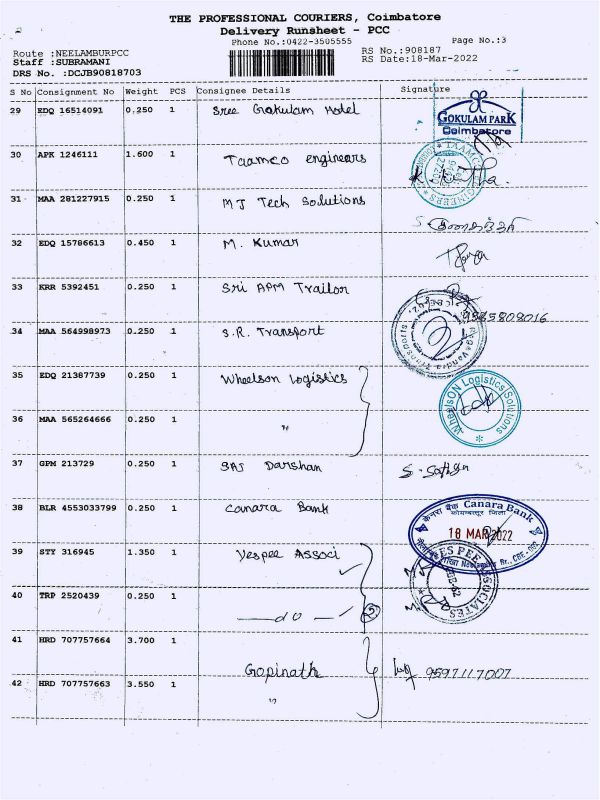 THE PROFESSIONAL COURIERS, Coimbatore
Delivery Runsheet - PCC
Phone No.:0422-3505555
Page No.:3
Route :NEELAMBURPCC
RS No.:908187
Staff :SUBRAMANI
RS Date:18-Mar-2022
DRS No. :DCJB90818703
S No Consignment No Weight PCS Consignee Details Signature
29 EDQ 16514091 0.250 1 Sree Gokulam Hotel
GOKULAM PARK
Coimbatore
30 APK 1246111 1.600 1 Taamco engineers
31 MAA 281227915 0.250 1 MJ Tech Solutions
32 EDQ 15786613 0.450 1 M. Kumar
33 KRR 5392451 0.250 1 Sri APM Trailor
9585808016
34 MAA 564998973 0.250 1 S.R. Transport
35 EDQ 21387739 0.250 1 Wheelson Logistics
WheelsON Logistics Solutions
36 MAA 565264666 0.250 1 "
37 GPM 213729 0.250 1 SAS Darshan
38 BLR 4553033799 0.250 1 Canara Bank
केनरा बैंक Canara Bank
18 MAR 2022
39 STY 316945 1.350 1 Yespee Associ
YES PEE ASSOCIATES
40 TRP 2520439 0.250 1 — do —
41 HRD 707757664 3.700 1
Gopinath 9597117007
42 HRD 707757663 3.550 1 "